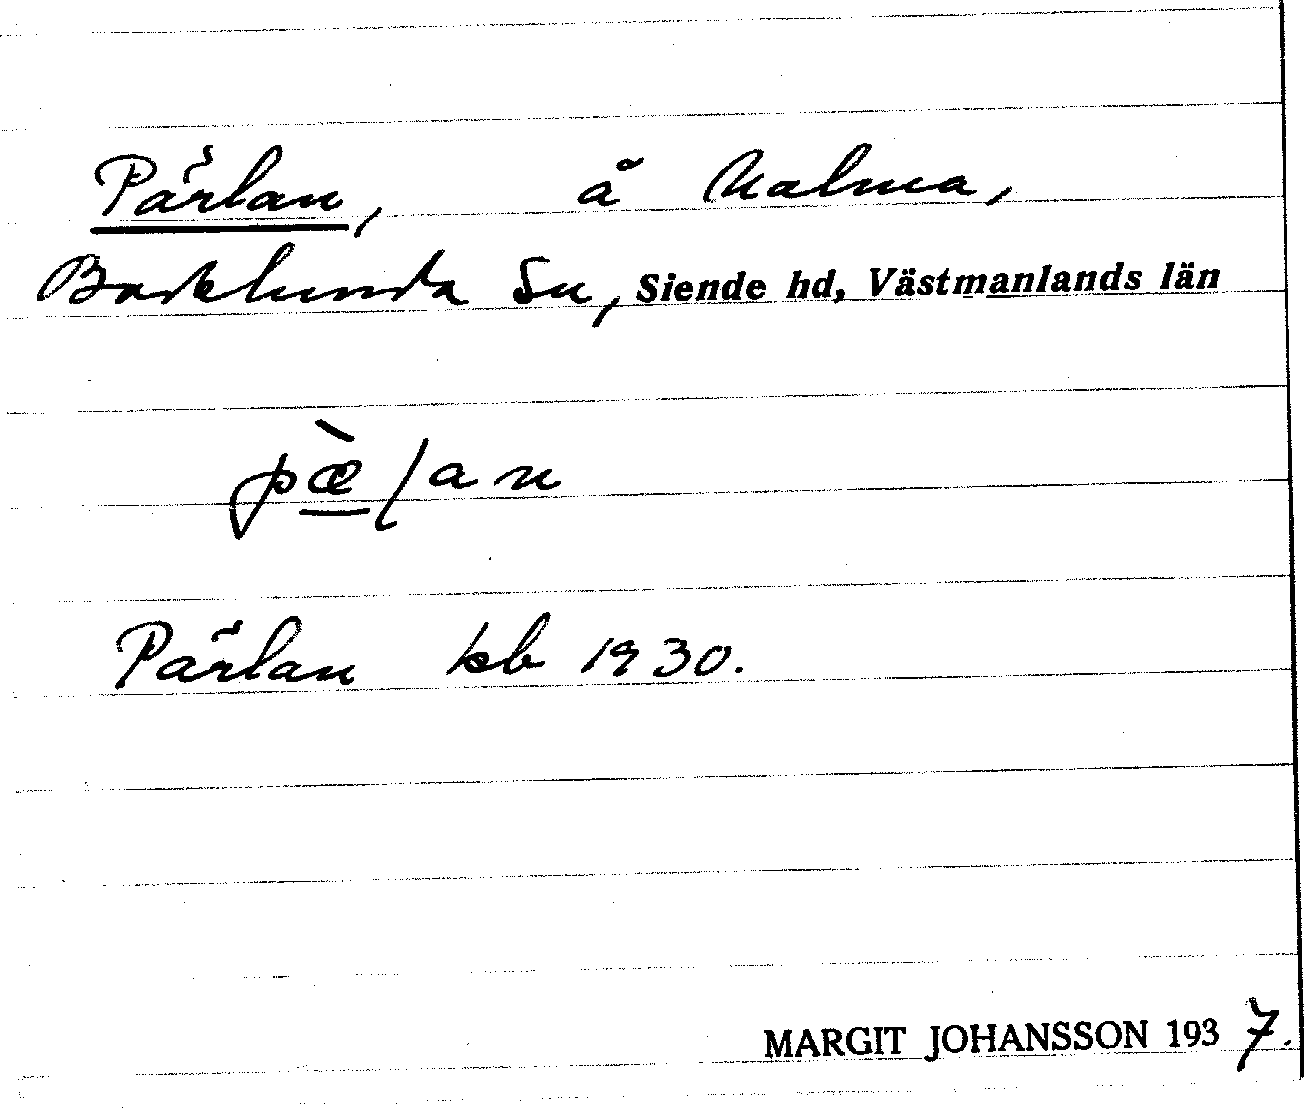 Pärlan, å Malma,
Badelunda Sn, Siende hd, Västmanlands län
pæ̀ḷan
Pärlan kb 1930.
MARGIT JOHANSSON 1937.